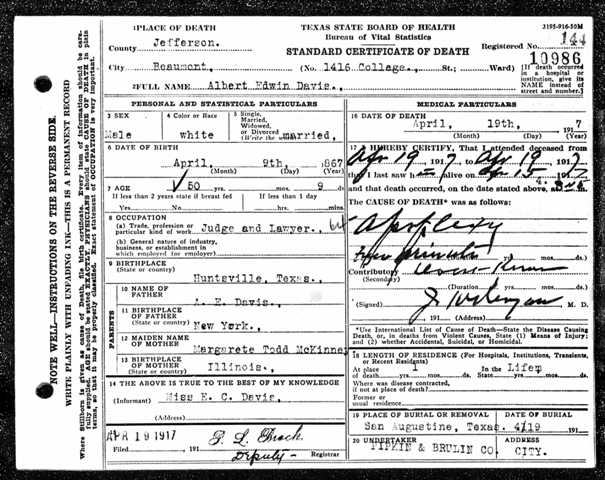 PLACE OF DEATH
TEXAS STATE BOARD OF HEALTH
Bureau of Vital Statistics
3195-916-50M
County Jefferson.
STANDARD CERTIFICATE OF DEATH
Registered No. 144
10986
City Beaumont, (No. 1416 College., St.; Ward)
[If death occurred in a hospital or institution, give its NAME instead of street and number.]
FULL NAME Albert Edwin Davis.,
PERSONAL AND STATISTICAL PARTICULARS
3 SEX Male
4 Color or Race white
5 Single, Married, Widowed, or Divorced (Write the word) married,
6 DATE OF BIRTH
April, 9th, 1867
(Month) (Day) (Year)
7 AGE
50 yrs. mos. 9 ds.
If less than 2 years state if breast fed
If less than 1 day
Yes No hrs. min.
8 OCCUPATION
(a) Trade, profession or particular kind of work Judge and Lawyer.,
(b) General nature of industry, business, or establishment in which employed (or employer)
9 BIRTHPLACE
(State or country) Huntsville, Texas.,
PARENTS
10 NAME OF FATHER A. E. Davis.,
11 BIRTHPLACE OF FATHER
(State or country) New York.,
12 MAIDEN NAME OF MOTHER Margarete Todd McKinney
13 BIRTHPLACE OF MOTHER
(State or country) Illinois.,
14 THE ABOVE IS TRUE TO THE BEST OF MY KNOWLEDGE
(Informant) Miss E. C. Davis,
(Address)
APR 19 1917
Filed , 191 P. L. Brock
Deputy- Registrar
MEDICAL PARTICULARS
16 DATE OF DEATH
April, 19th, 1917
(Month) (Day) (Year)
17 I HEREBY CERTIFY, That I attended deceased from
Apr 19 1917, to Apr 19 1917
that I last saw h alive on Apr 15 1917
and that death occurred, on the date stated above, at m.
The CAUSE OF DEATH* was as follows:
Apoplexy
few minutes yrs. mos. ds.
Contributory
(Secondary)
yrs. mos. ds.
(Signed) M. D.
, 191 (Address)
*Use International List of Cause of Death—State the Disease Causing Death, or, in deaths from Violent Causes, State (1) Means of Injury; and (2) whether Accidental, Suicidal, or Homicidal.
18 LENGTH OF RESIDENCE (For Hospitals, Institutions, Transients, or Recent Residents)
At place of death 1 yrs. mos. ds. In the State Life yrs. mos. ds.
Where was disease contracted, if not at place of death?
Former or usual residence
19 PLACE OF BURIAL OR REMOVAL
DATE OF BURIAL
San Augustine, Texas. 4/19 , 191
20 UNDERTAKER
ADDRESS
PIPKIN & BRULIN CO. CITY.
NOTE WELL—INSTRUCTIONS ON THE REVERSE SIDE.
WRITE PLAINLY WITH UNFADING INK—THIS IS A PERMANENT RECORD
Where stillborn is given as cause of Death, file birth certificate. Every item of information should be carefully supplied. AGE should be stated EXACTLY. PHYSICIANS should state CAUSE OF DEATH in plain terms, so that it may be properly classified. Exact statement of OCCUPATION is very important.